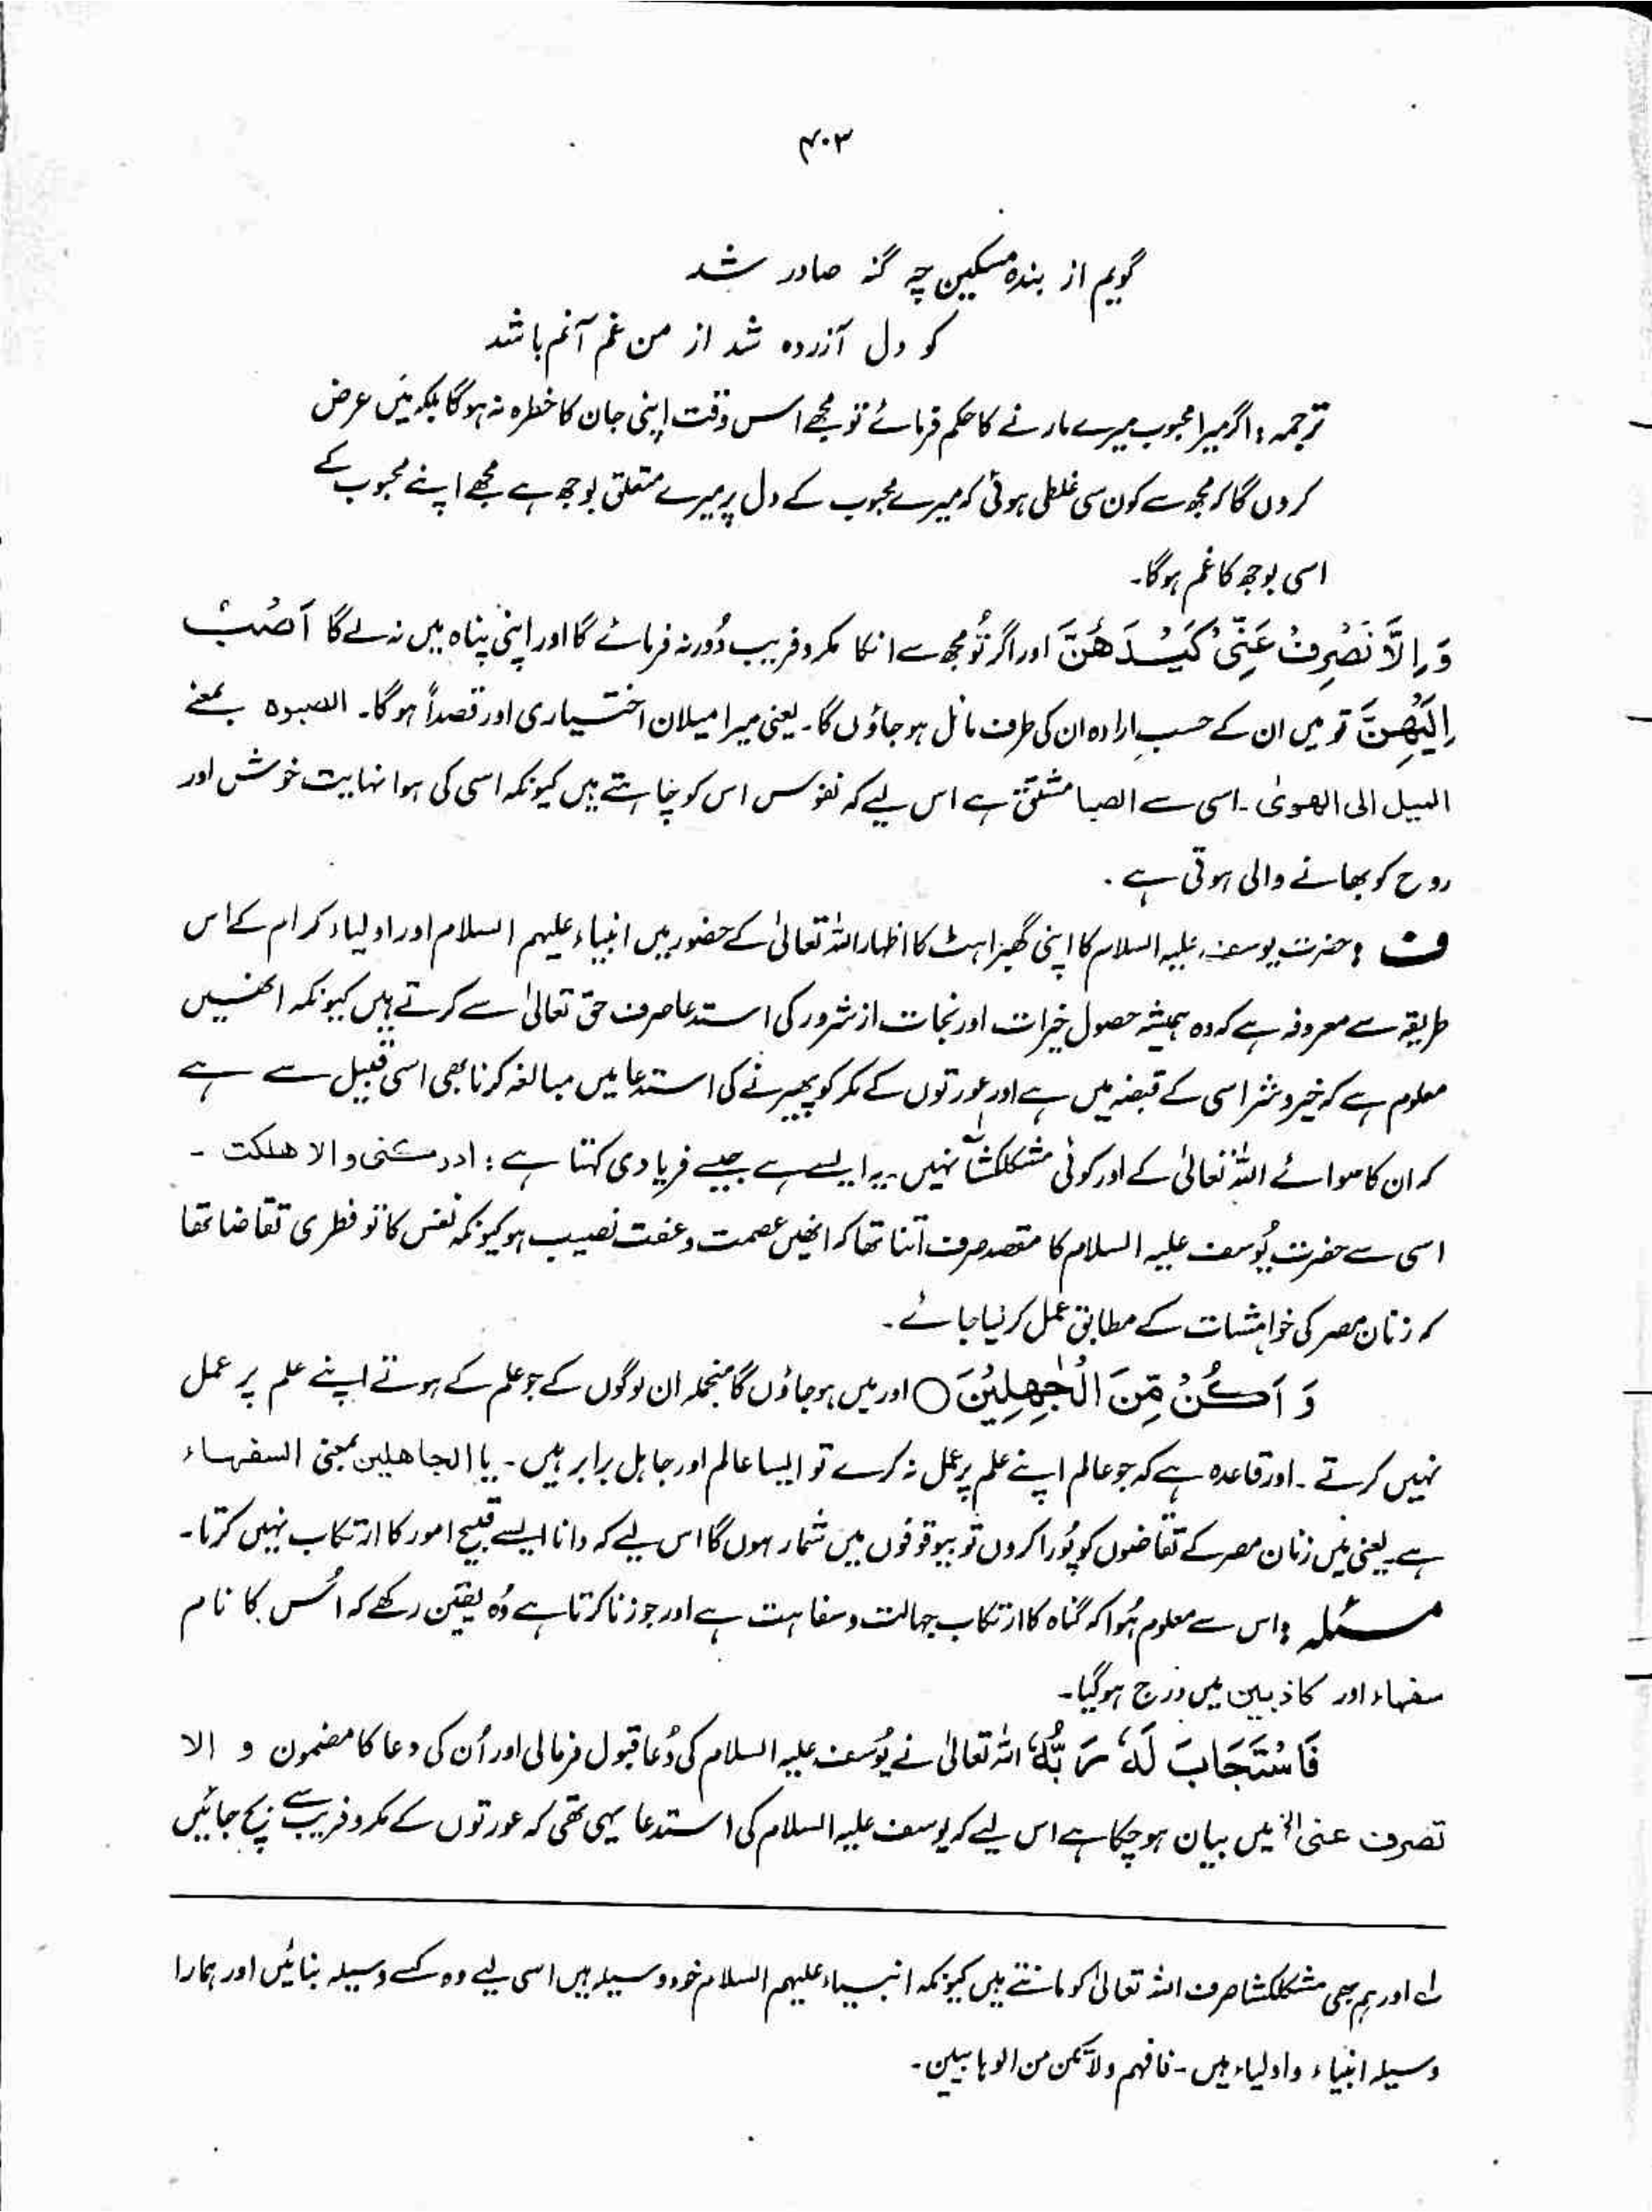 ۴۰۳
گویم از بندہ مسکین چہ گنہ صادر شد
کو دل آزردہ شد از من غم آنم باشد
ترجمہ : اگر میرا محبوب میرے مارنے کا حکم فرمائے تو مجھے اس وقت اپنی جان کا خطرہ نہ ہوگا بلکہ میں عرض
کروں گا کہ مجھ سے کون سی غلطی ہوئی کہ میرے محبوب کے دل پر میرے متعلق بوجھ ہے مجھے اپنے محبوب کے
اسی بوجھ کا غم ہوگا۔
وَ اِلَّا تَصْرِفْ عَنِّیْ كَیْدَهُنَّ اور اگر تُو مجھ سے انکا مکر و فریب دُور نہ فرمائے گا اور اپنی پناہ میں نہ لے گا اَصْبُ
اِلَیْهِنَّ تو میں ان کے حسبِ ارادہ ان کی طرف مائل ہو جاؤں گا۔ یعنی میرا میلان اختیاری اور قصداً ہوگا۔ الصبوہ بمعنے
المیل الی الھویٰ۔ اسی سے الصبا مشتق ہے اس لیے کہ نفوس اس کو چاہتے ہیں کیونکہ اسی کی ہوا نہایت خوش اور
روح کو بھانے والی ہوتی ہے۔
ف : حضرت یوسف علیہ السلام کا اپنی گھبراہٹ کا اظہار اللہ تعالیٰ کے حضور میں انبیاء علیہم السلام اور اولیاء کرام کے اس
طریقہ سے معروفہ ہے کہ وہ ہمیشہ حصول خیرات اور نجات از شرور کی استدعا صرف حق تعالیٰ سے کرتے ہیں کیونکہ انھیں
معلوم ہے کہ خیر و شر اسی کے قبضہ میں ہے اور عورتوں کے مکر کو پھیرنے کی استدعا میں مبالغہ کرنا بھی اسی قبیل سے ہے
کہ ان کا سوائے اللہ تعالیٰ کے اور کوئی مشکلکشا نہیں۔ یہ ایسے ہے جیسے فریادی کہتا ہے : ادرکنی والا ھلکت ۔
اسی سے حضرت یُوسف علیہ السلام کا مقصد صرف اتنا تھا کہ انھیں عصمت و عفت نصیب ہو کیونکہ نفس کا تو فطری تقاضا تھا
کہ زنان مصر کی خواہشات کے مطابق عمل کر لیا جائے۔
وَ اَكُنْ مِّنَ الْجٰهِلِیْنَ ○ اور میں ہو جاؤں گا منجملہ ان لوگوں کے جو علم کے ہوتے اپنے علم پر عمل
نہیں کرتے۔ اور قاعدہ ہے کہ جو عالم اپنے علم پر عمل نہ کرے تو ایسا عالم اور جاہل برابر ہیں۔ یا الجاھلین بمعنی السفہاء
ہے۔ یعنی میں زنان مصر کے تقاضوں کو پُورا کروں تو بیوقوفوں میں شمار ہوں گا اس لیے کہ دانا ایسے قبیح امور کا ارتکاب نہیں کرتا۔
مسئلہ : اس سے معلوم ہُوا کہ گناہ کا ارتکاب جہالت و سفاہت ہے اور جو زنا کرتا ہے وُہ یقین رکھے کہ اُس کا نام
سفہاء اور کاذبین میں درج ہو گیا۔
فَاسْتَجَابَ لَهٗ رَبُّهٗ اللہ تعالیٰ نے یُوسف علیہ السلام کی دُعا قبول فرمالی اور اُن کی دعا کا مضمون و الا
تصرف عنی الخ میں بیان ہو چکا ہے اس لیے کہ یوسف علیہ السلام کی استدعا یہی تھی کہ عورتوں کے مکر و فریب سے بچ جائیں
لہ اور ہم بھی مشکلکشا صرف اللہ تعالیٰ کو مانتے ہیں کیونکہ انبیاء علیہم السلام خود وسیلہ ہیں اسی لیے وہ کسے وسیلہ بنائیں اور ہمارا
وسیلہ انبیاء و اولیاء ہیں۔ فافہم ولا تکن من الوہابیین۔